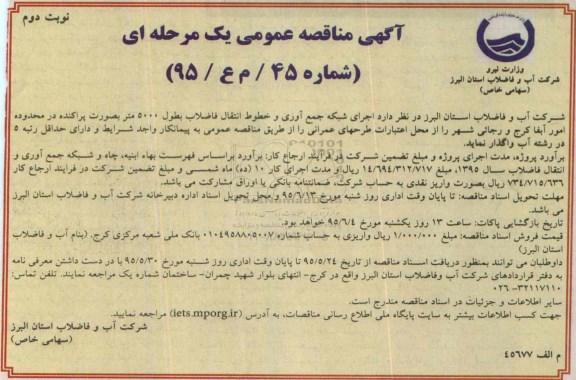 نوبت دوم
آگهی مناقصه عمومی یک مرحله ای
(شماره ۴۵ / م ع / ۹۵)
وزارت نیرو
شرکت آب و فاضلاب استان البرز
(سهامی خاص)
شرکت آب و فاضلاب استان البرز در نظر دارد اجرای شبکه جمع آوری و خطوط انتقال فاضلاب بطول ۵۰۰۰ متر بصورت پراکنده در محدوده
امور آبفا کرج و رجائی شهر را از محل اعتبارات طرحهای عمرانی را از طریق مناقصه عمومی به پیمانکار واجد شرایط و دارای حداقل رتبه ۵
در رشته آب واگذار نماید.
برآورد پروژه، مدت اجرای پروژه و مبلغ تضمین شرکت در فرآیند ارجاع کار: برآورد براساس فهرست بهاء ابنیه، چاه و شبکه جمع آوری و
انتقال فاضلاب سال ۱۳۹۵، مبلغ ۱۴/۶۹۴/۳۱۲/۷۱۷ ریال و مدت اجرای کار ۱۰ (ده) ماه شمسی و مبلغ تضمین شرکت در فرآیند ارجاع کار
۷۳۴/۷۱۵/۶۳۶ ریال بصورت واریز نقدی به حساب شرکت، ضمانتنامه بانکی یا اوراق مشارکت می باشد.
مهلت تحویل اسناد مناقصه: تا پایان وقت اداری روز شنبه مورخ ۹۵/۶/۱۳ و محل تحویل اسناد اداره دبیرخانه شرکت آب و فاضلاب استان البرز
می باشد.
تاریخ بازگشایی پاکات: ساعت ۱۳ روز یکشنبه مورخ ۹۵/۶/۴ خواهد بود.
قیمت فروش اسناد مناقصه: مبلغ ۱/۰۰۰/۰۰۰ ریال واریزی به حساب شماره ۰۱۰۴۹۵۸۸۰۵۰۰۷ بانک ملی شعبه مرکزی کرج. (بنام آب و فاضلاب
استان البرز)
داوطلبان می توانند بمنظور دریافت اسناد مناقصه از تاریخ ۹۵/۵/۲۴ تا پایان وقت اداری روز شنبه مورخ ۹۵/۵/۳۰ با در دست داشتن معرفی نامه
به دفتر قراردادهای شرکت آب وفاضلاب استان البرز واقع در کرج- انتهای بلوار شهید چمران- ساختمان شماره یک مراجعه نمایند. تلفن تماس:
۳۲۱۱۷۱۱۰-۰۲۶
سایر اطلاعات و جزئیات در اسناد مناقصه مندرج است.
جهت کسب اطلاعات بیشتر به سایت پایگاه ملی اطلاع رسانی مناقصات، به آدرس (iets.mporg.ir) مراجعه نمایید.
شرکت آب و فاضلاب استان البرز
(سهامی خاص)
م الف ۴۵۶۷۷